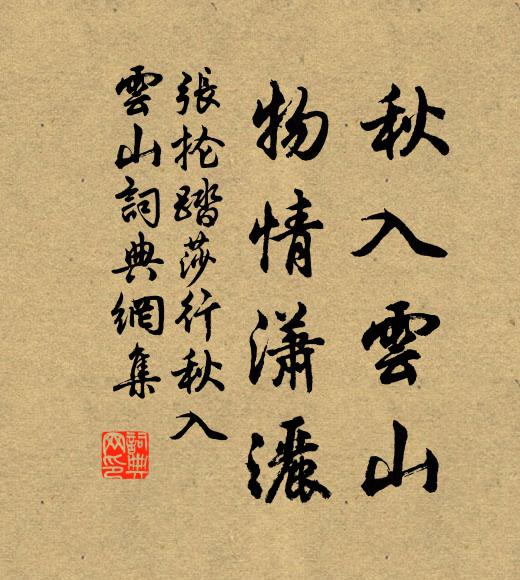 秋入雲山
物情瀟灑
張掄踏莎行秋入
雲山詞典網集
詞典網印